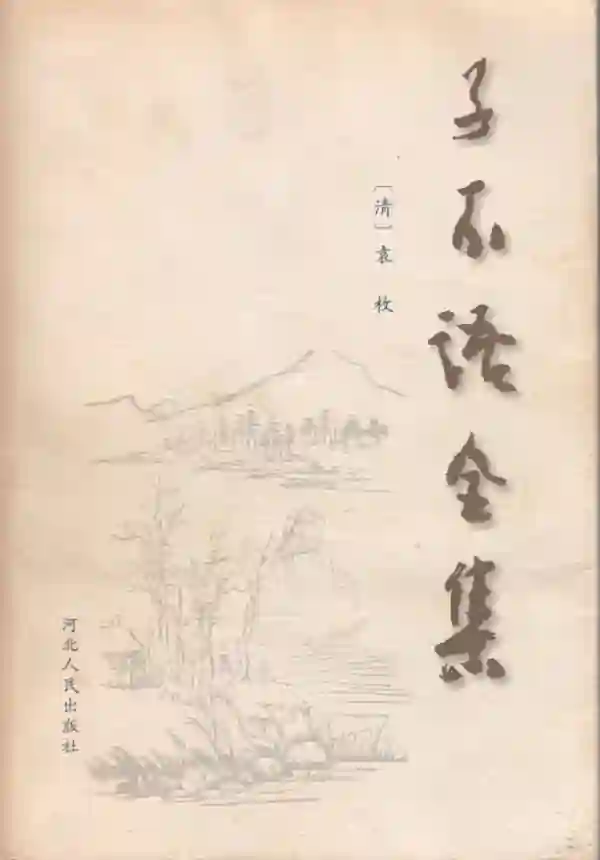 子不语全集
〔清〕袁枚
河北人民出版社